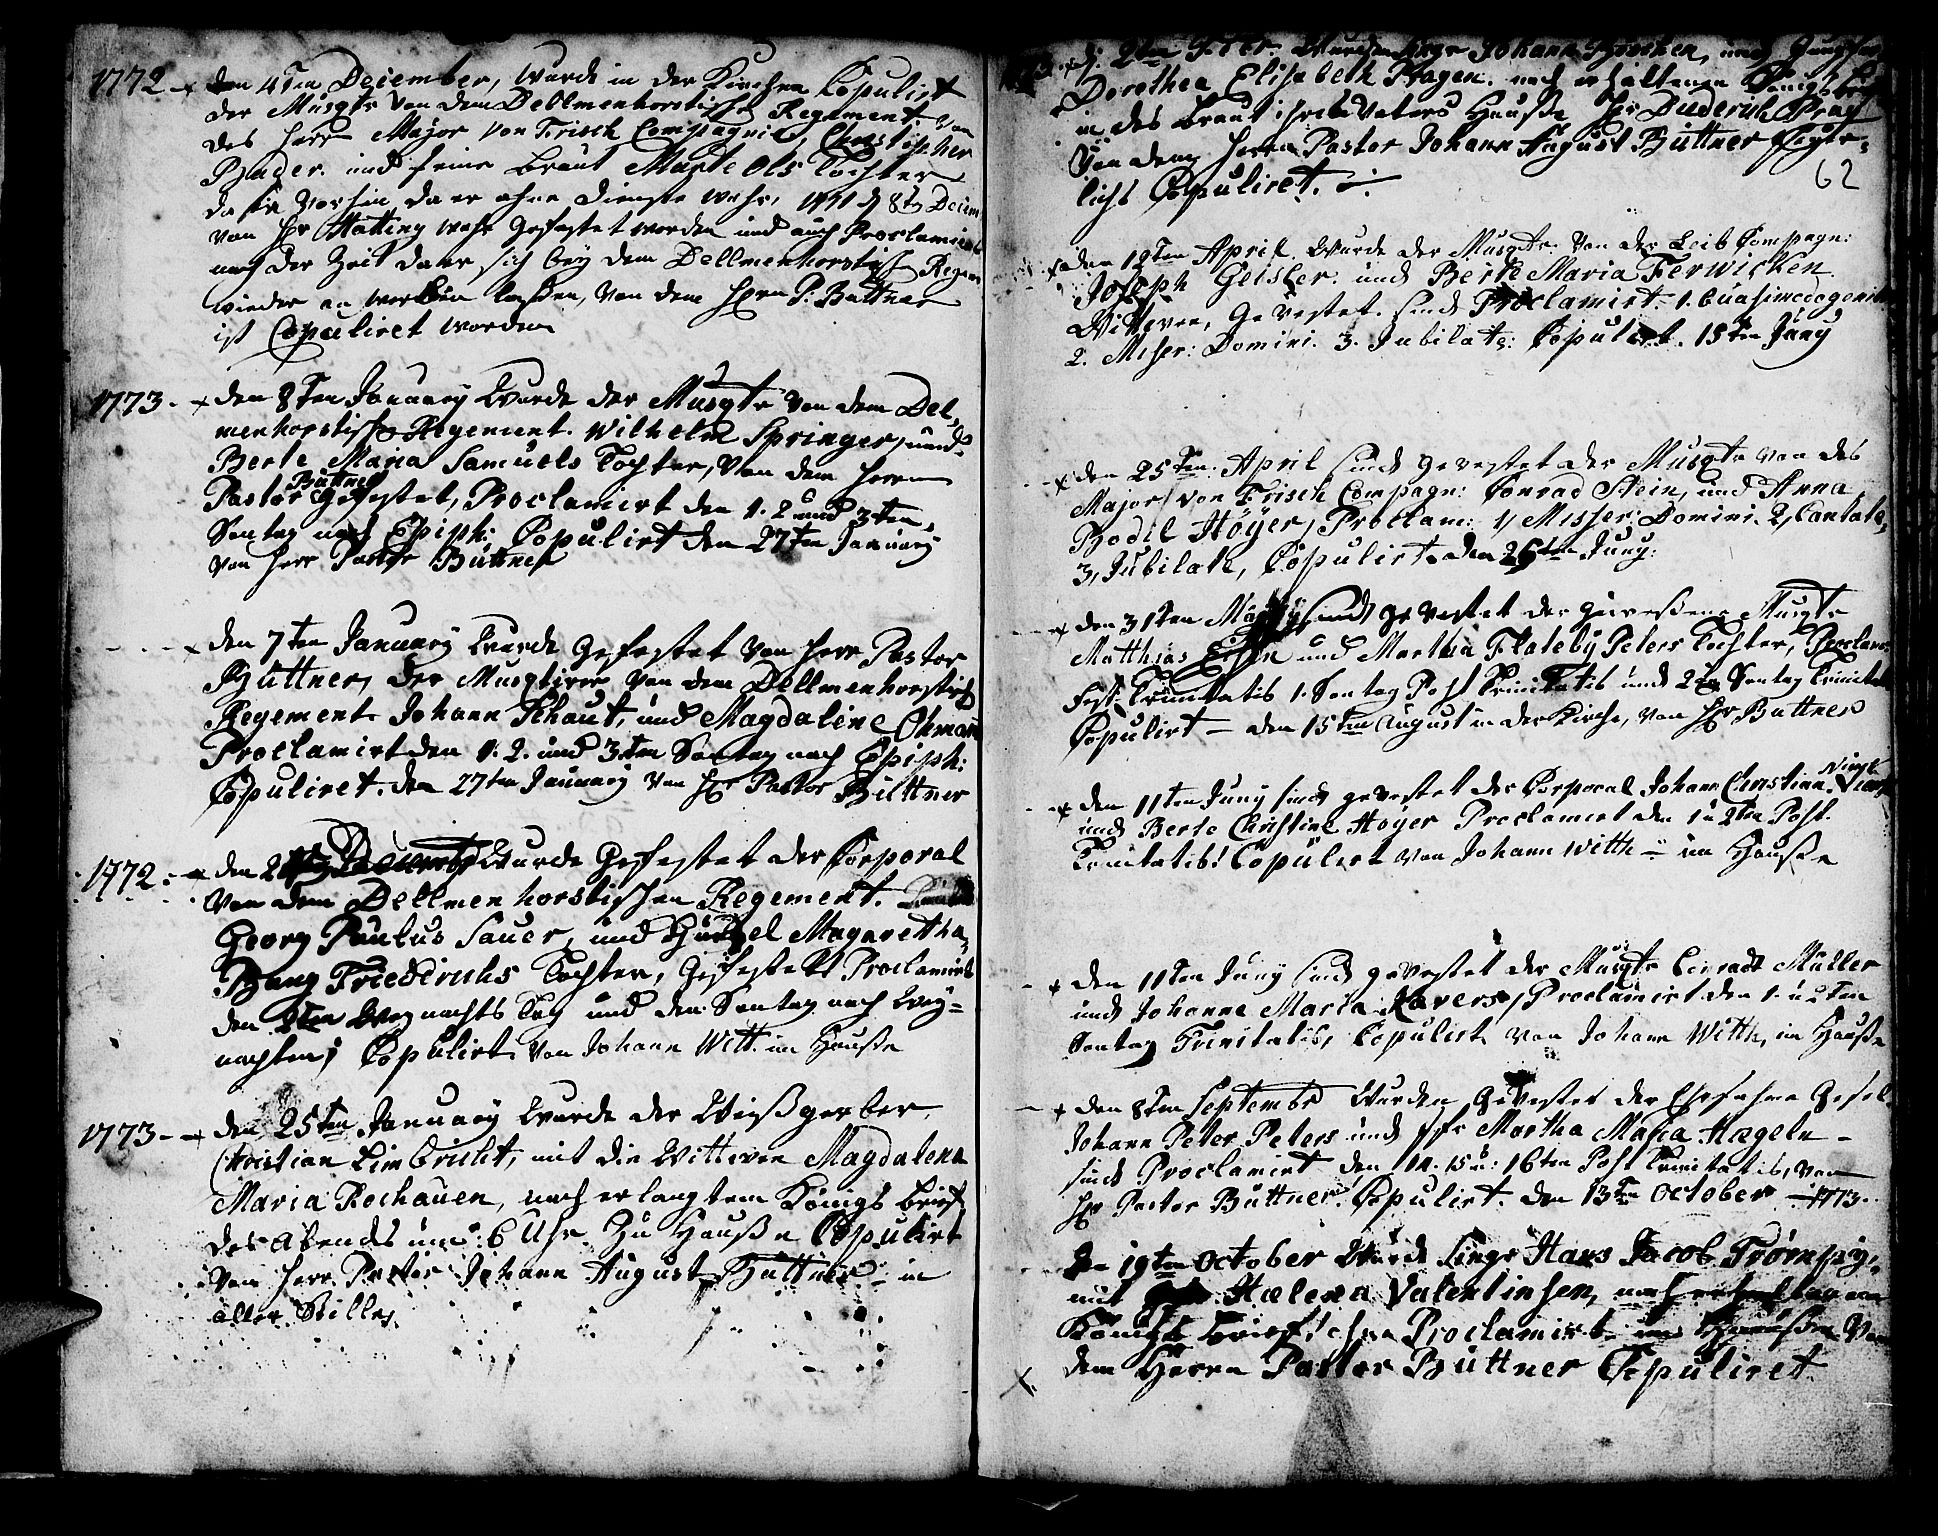 1772 den 4ten December, wurde in der Kirchen Copulirt
der Musqtr von dem Dellmenhorstisch Regement. von
des Herr Major von Frisch Compagnie, Christopher
Bader und seine Braut Marte Ols Tochter
da sie vorhin da er ohne Dienste wahr, 1771 d 8t Decem
von Hr Hatting wahr gefestet worden und auch Proclamirt
nach der Zeit da er sich bey dem Dellmenhorstisch Regem
wieder an werben lassen, von dem Hrn P. Buttner
ist Copuliret worden
1773. den 8ten January wurde der Musqtr von dem Del-
menhorstisch Regement. Wilhelm Springer, und
Berte Maria Samuels Tochter, von dem Herrn
Pastor Buttner gefestet, Proclamirt den 1. 2 und 3ten
Sontag nach Epiph: Copulirt den 27ten January
von Herr Pastor Buttner
den 7ten January wurde gefestet von Herr Pastor
Büttner, der Musqtirer von dem Dellmenhorstisch
Regement Johann Schaut, und Magdaline Ohman
Proclamirt den 1. 2. und 3ten Sontag nach Epiph:
Copuliret. den 27ten January von Hr Pastor Büttner
1772. den wurde gefestet der Corporal
von dem Dellmenhorstischen Regement.
Georg Paulus Sauer, und Margaretha
Bang Friedrichs Tochter, gefestet Proclamirt
den 2ten Weynachts Tag und den Sontag nach Wey-
nachten, Copulirt von Johann Witt im Hausse
1773 den 25ten January wurde der Weissgerber
Christian Limbricht, mit die Wittwen Magdalena
Maria Rochauen, nach erlangtem Königs brief
des Abends um 6 Uhr zu Hausse Copulirt
von Herr Pastor Johann August Büttner in
aller Stille,
d. 2ten Febr. wurden Johann und Jungfer
Dorothea Elisabeth Hagen. nach erhaltenen Königsbrief
in des Braut ihres Vaters Hausse, Hr Duderich
von dem Herrn Pastor Johann August Büttner
lich Copuliret.
62
den 19ten April wurde der Musqtr. von der Leib Compagn:
Joseph Geisler. und Berte Maria Ferwicken
Wittwen, Gevestet. sind Proclamirt. 1. Quasimodogeniti
2. Miser: Domini. 3. Jubilate: Copulirt. 15ten Juny
den 25ten April sind gevestet der Musqtr von des
Major von Frisch Compagn: Conrad Stein, und Anna
Bodil Höyer, Proclam: 1, Misser: Domini. 2, Cantate,
3, Jubilate, Copulirt. den 26ten Juny.
den 31ten May sind gevestet der Musqtr
Matthias und Martha Flateby Peters Tochter, Proclam:
Fest Trinitatis 1. Sontag Post Trinitatis und 2ten Sontag Trinitat
Copulirt – den 15ten August in der Kirche, von Hr Buttner
den 11ten Juny sind gevestet der Corporal Johann Christian
und Berte Christine Höyer Proclamirt den 1 u 2ten Post.
Trinitatis! Copulirt von Johann Witth im Hausse
den 11ten Juny sind gevestet der Musqtr Conradt Müller
und Johanne Maria Kavers, Proclamirt den 1. u 2ten
Sontag Trinitatis, Copulirt von Johann Witth, im Hausse
den 8ten Septembr wurden Gevestet der Gesel.
Johann Peter Peters und Martha Maria Hægeln –
sind Proclamirt den 14. 15 u: 16ten Post Trinitatis, von
Hr Pastor Buttner Copulirt den 13ten October – 1773.
19ten October wurde Hans Jacob Trörnpsy,
mit Hælena Valentinsen, nach erhaltenen
Königs brief! ohne Proclamirt im Hausse von
dem Herrn Pastor Büttner Copuliret.